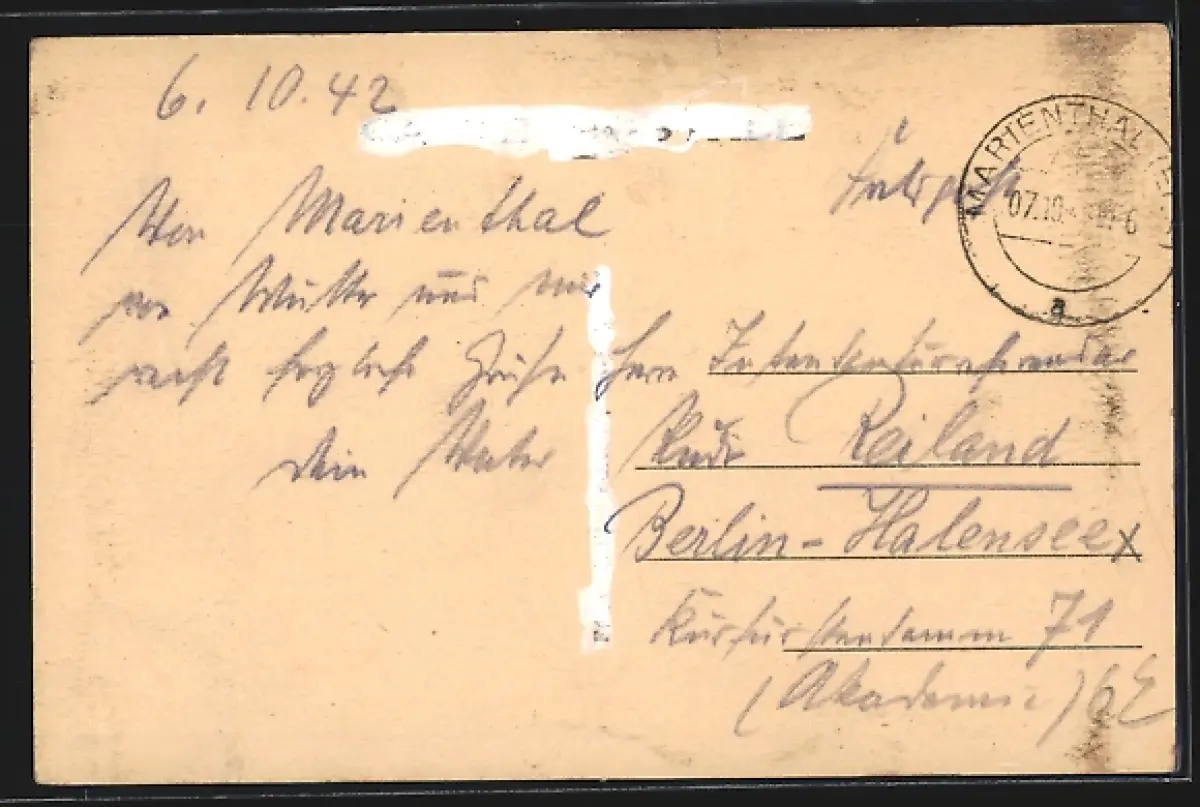 6. 10. 42
Von Marienthal
von Mutter und mir
recht herzliche Grüße
Dein Vater
Feldpost
MARIENTHAL
07.10
a
Herrn Intendanturreferendar
Rudi Reiland
Berlin-Halensee
Kurfürstendamm 71
(Akademie)